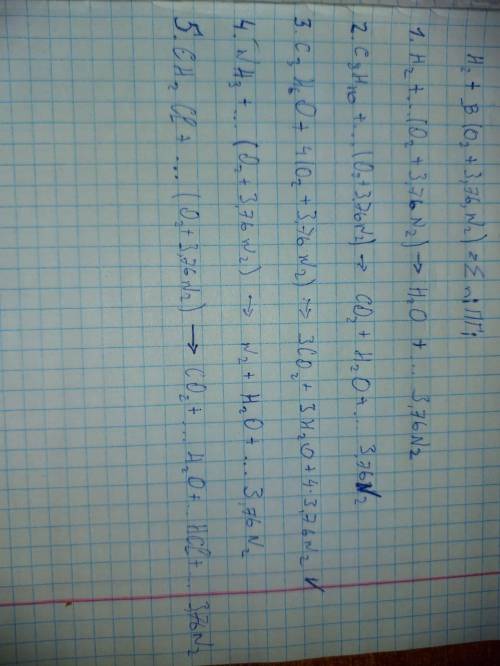 H₂ + B (O₂ + 3,76 N₂) = Σ niПГi
1. H₂ + ... (O₂ + 3,76 N₂) → H₂O + ... 3,76 N₂
2. C₃H₁₀ + ... (O₂ + 3,76 N₂) → CO₂ + H₂O + ... 3,76 N₂
3. C₃H₆O + 4(O₂ + 3,76 N₂) → 3CO₂ + 3H₂O + 4·3,76 N₂ V
4. NH₃ + ... (O₂ + 3,76 N₂) → N₂ + H₂O + ... 3,76 N₂
5. CH₂Cl + ... (O₂ + 3,76 N₂) → CO₂ + ... H₂O + ... HCl + ... 3,76 N₂